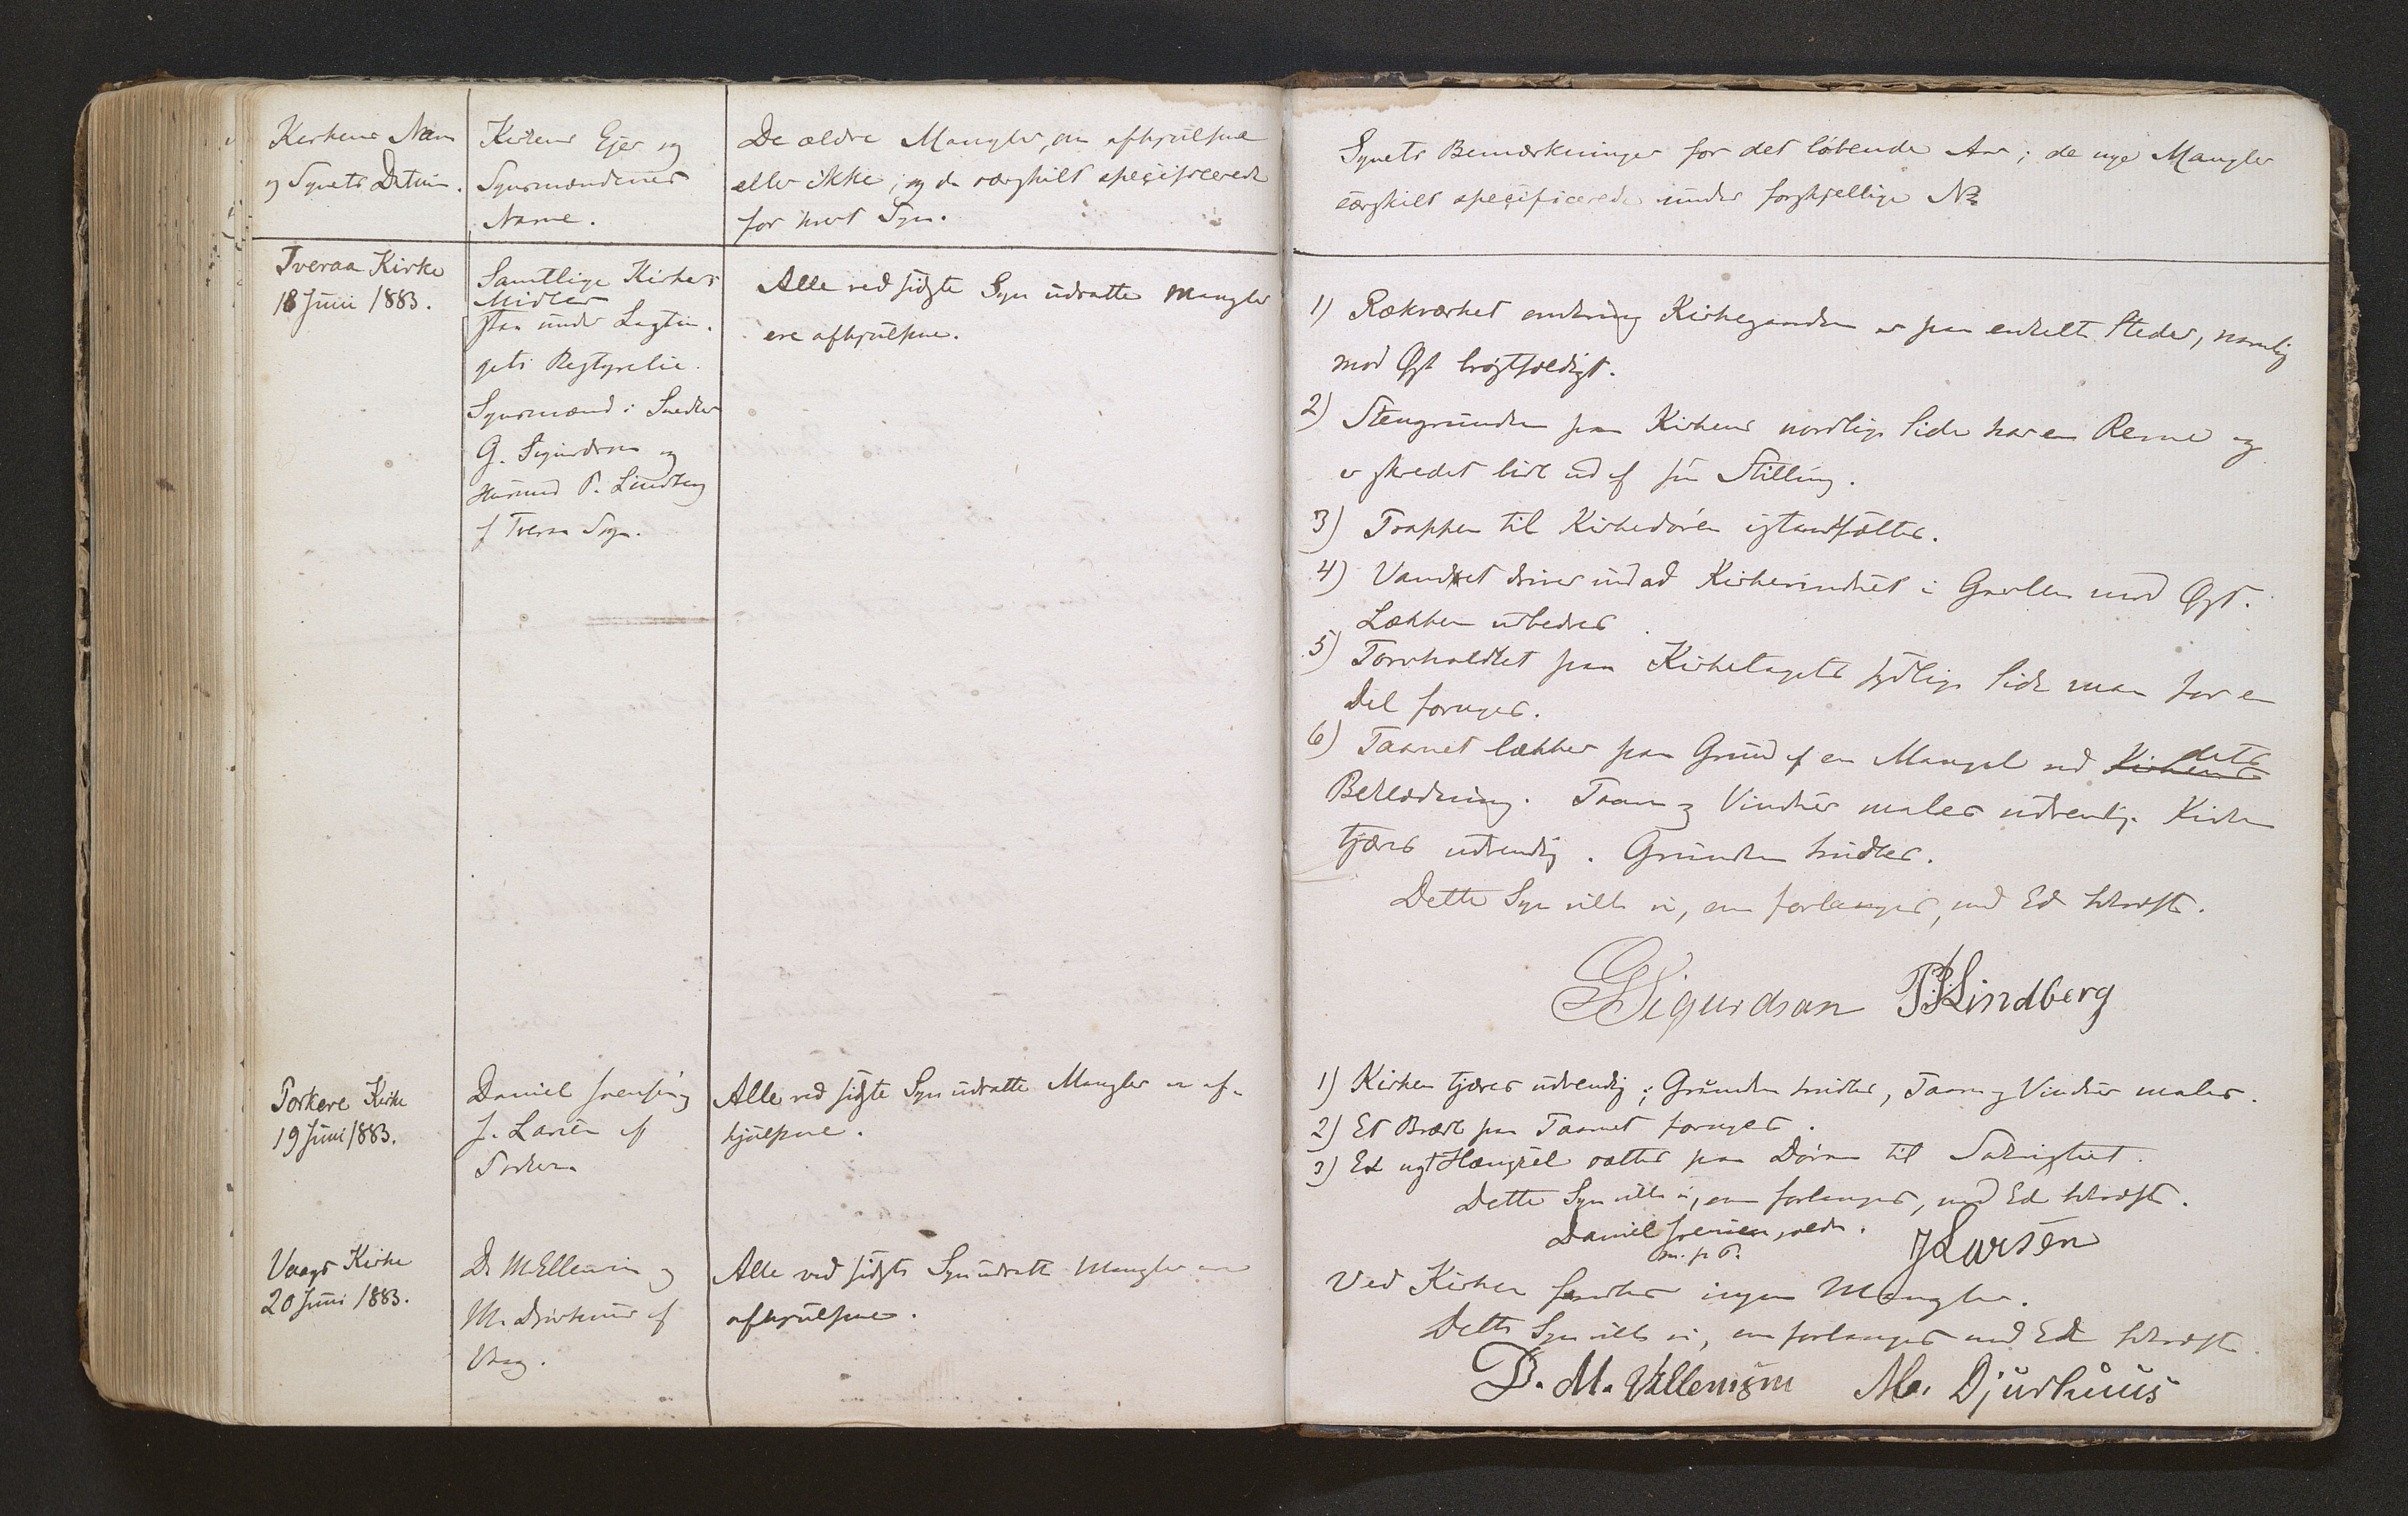 Kirkens Navn
og Synets Datum.
Kirkens Ejer og
Synsmændenes
Navne.
De ældre Mangler, om afhjulpne
eller ikke; og da særskilt specificerede
for hvert Syn.
Synets Bemærkninger for det løbende Aar; de nye Mangler
særskilt specificerede under forskjellige No
Tveraa Kirke
18 Juni 1883.
Samtlige Kirkers
Midler
staa under Lagtin-
gets Bestyrelse.
Synsmænd: Snedker
G. Sigurdson og
Husmd P. Lindberg
af Tveraa Sogn.
Alle ved sidste Syn udsatte Mangler
ere afhjulpne.
1) Rækværket omkring Kirkegaarden er paa enkelte Steder, navnlig
mod Øst brøstfældigt.
2) Stengrunden paa Kirkens nordlige Side har en Revne og
er skredet lidt ud af sin Stilling.
3) Trappen til Kirkedøren istandsættes.
4) Vandet driver ind ad Kirkevinduet i Gavlen mod Øst.
Lækken udbedres
5) Tørvholdtet paa Kirketagets sydlige Side maa for en
Del fornyes.
6) Taarnet lækker paa Grund af en Mangel ved Kirkens dets
Beklædning. Taarn og Vinduer males udvendig. Kirken
tjæres udvendig. Grunden hvidtes.
Dette Syn ville vi, om forlanges, med Ed bekræfte.
GSigurdson PJLindberg
Porkere Kirke
19 Juni 1883.
Daniel Joensen og
J. Larsen af
Porkere
Alle ved sidste Syn udsatte Mangler er af-
hjulpne.
1) Kirken tjæres udvendig; Grunden hvidtes, Taarn og Vinduer males.
2) Et Bræt paa Taarnet fornyes.
3) Et nyt Hængsel sættes paa Døren til Sakristiet.
Dette Syn ville vi, om forlanges, med Ed bekræfte.
Daniel Joensen, ældre.
m. p. P.
JLarsen
Vaags Kirke
20 Juni 1883.
D. M. Ellemin og
M. Djurhuus af
Vaag.
Alle ved sidste Syn udsatte Mangler ere
afhjulpne.
Ved Kirken fandtes ingen Mangler.
Dette Syn ville vi, om forlanges med Ed bekræfte
D. M. Vilhemsen M. Djurhuus